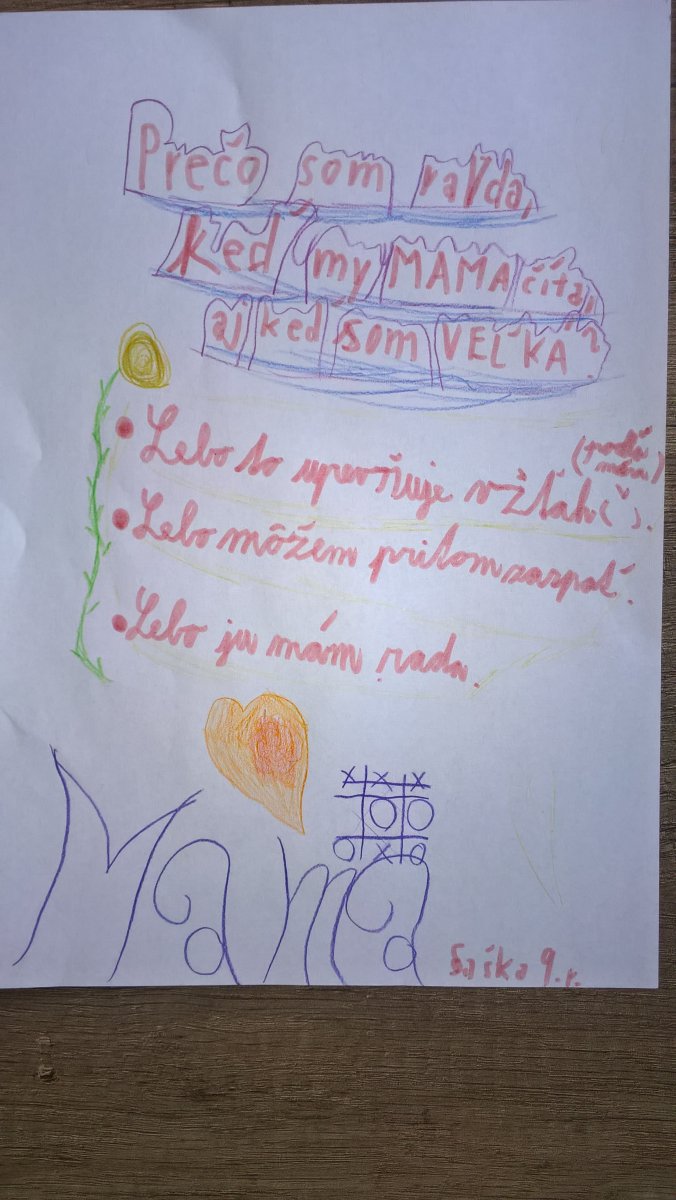 Prečo som raďda,
Keď my MAMA číta,
aj keď som VEĽKÁ?
(podľa
mňa)
• Lebo to upevňuje vžťah(ˇ).
• Lebo môžem pritom zaspať.
• Lebo ju mám rada.
X X X
O O
O X O
Mama
Saška 9.r.